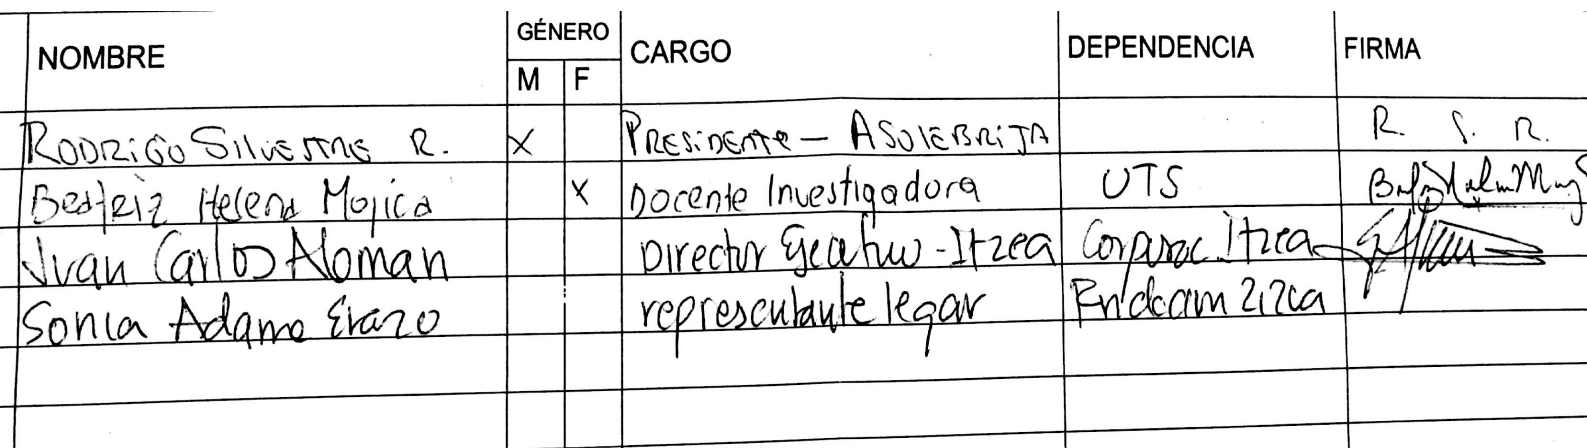 NOMBRE GÉNERO CARGO DEPENDENCIA FIRMA
M F
RODRIGO SILVESTRE R. X PRESIDENTE - ASOLEBRIJA R. S. R.
Beatriz Helena Mojica X Docente Investigadora UTS
Juan Carlos Aloman Director Ejecutivo - Itzea Corporac. Itzea
Sonia Adame Erazo representante legar